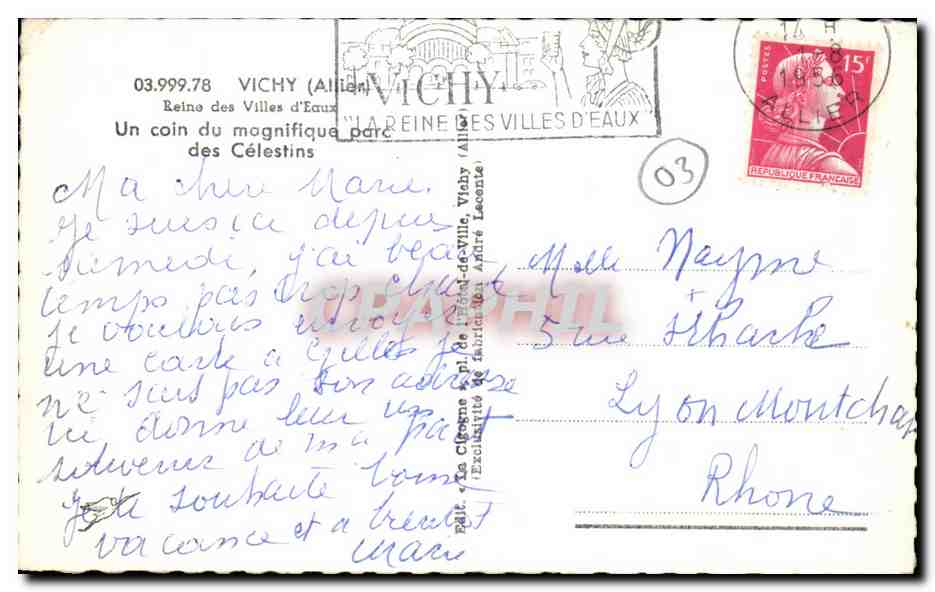 03.999.78 VICHY (Allier)
Reine des Villes d'Eaux
Un coin du magnifique parc
des Célestins
VICHY
"LA REINE DES VILLES D'EAUX"
14 H
1-8
1956
ALLIER
POSTES
15F
REPUBLIQUE FRANÇAISE
03
Ma chere Marie.
Je suis ici depuis
samedi, j'ai beau
temps pas trop chaud
je voulais envoyer
une carte a Gilles je
ne sais pas son adresse
ici, donne leur un
souvenir de ma part
Je te souhaite bonne
vacance et a bientot
Marie
Edit. "La Cigogne" pl. de l'Hôtel-de-Ville, Vichy (Allier)
(Exclusivité de fabrication André Leconte)
CPAPHIL
Melle Nayme
5 rue
Lyon Montchat
Rhone